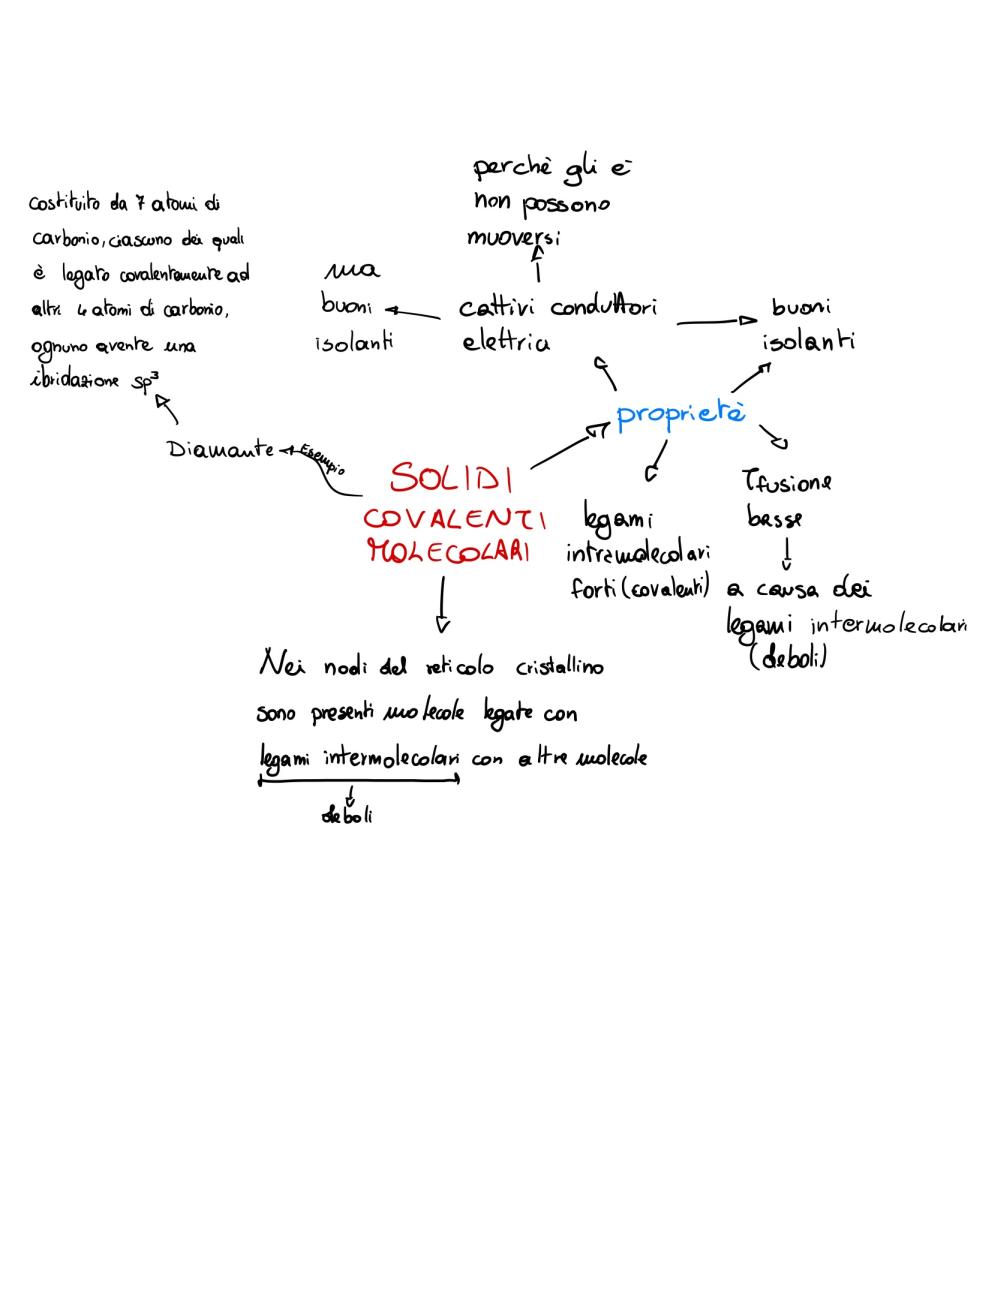 perchè gli e-
non possono
muoversi
costituito da 7 atomi di
carbonio, ciascuno dei quali
è legato covalentemente ad
altri 4 atomi di carbonio,
ognuno avente una
ibridazione sp³
ma
buoni
isolanti
cattivi conduttori
elettria
buoni
isolanti
proprietà
Diamante
Esempio
SOLIDI
COVALENTI
MOLECOLARI
legami
intramolecolari
forti (covalenti)
Tfusione
basse
a causa dei
legami intermolecolari
(deboli)
Nei nodi del reticolo cristallino
sono presenti molecole legate con
legami intermolecolari con altre molecole
deboli